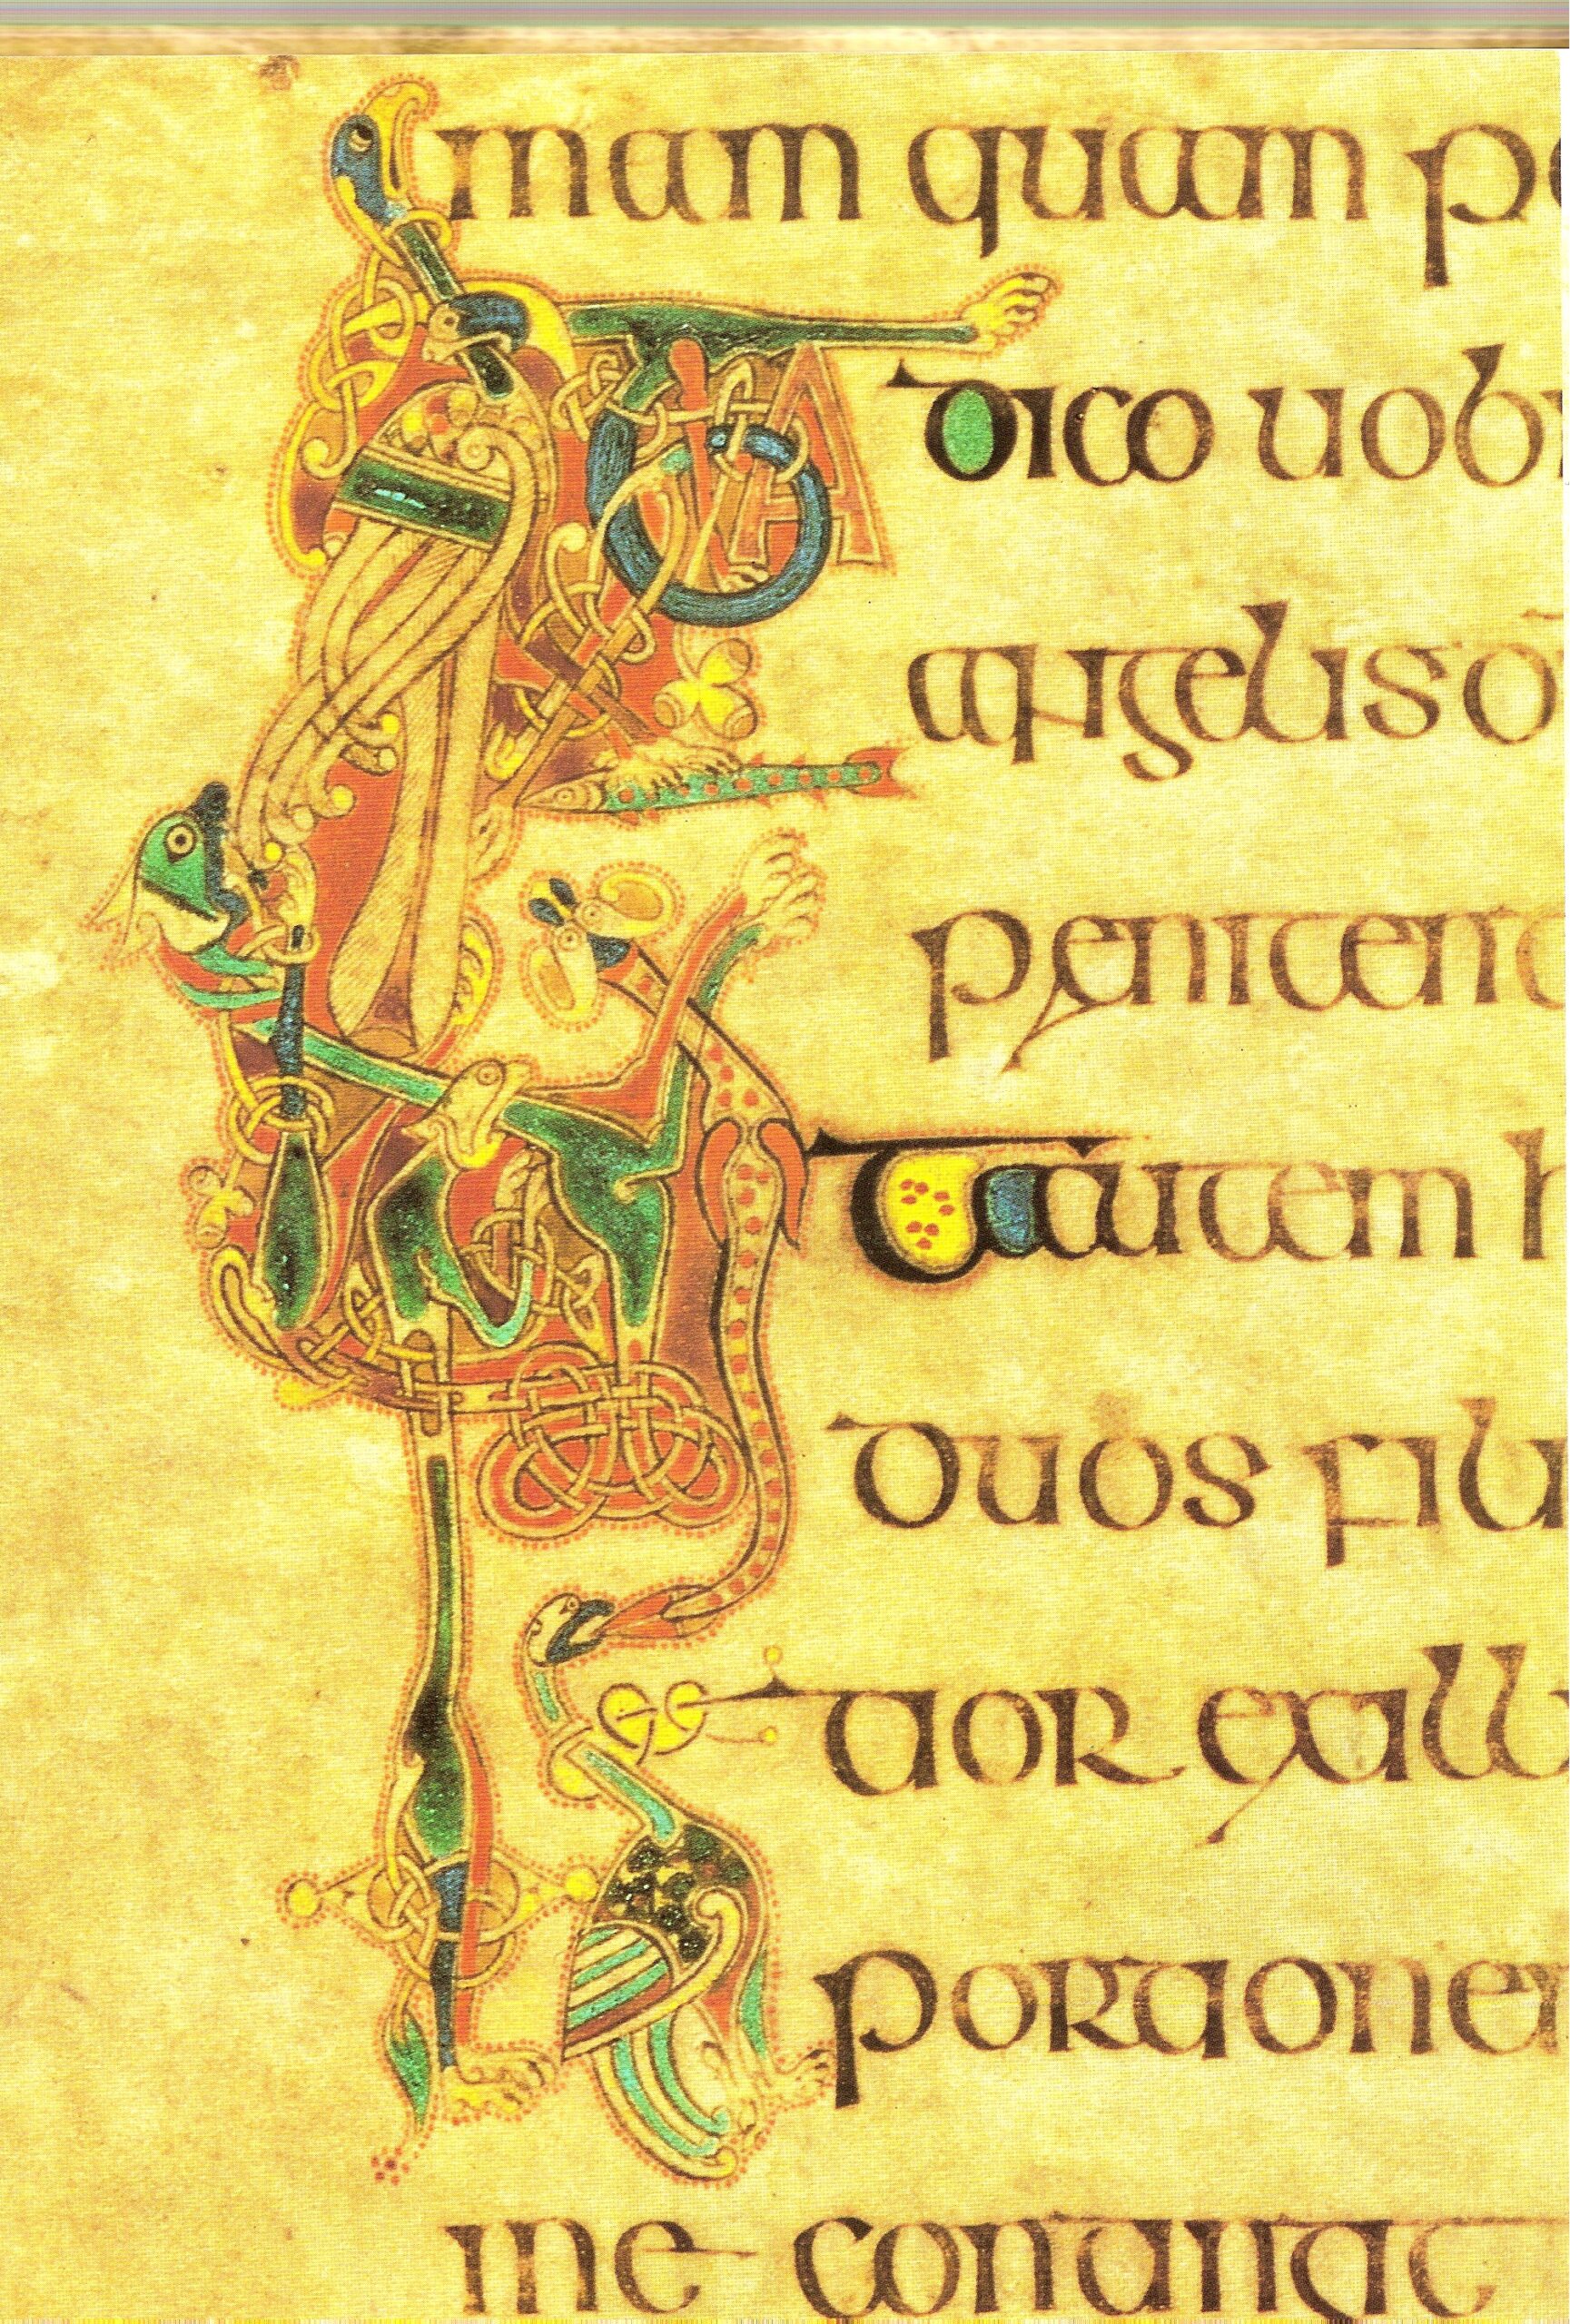 mam quam pe
ITA dico uobi
angelis d
penitent
AIt autem h
duos fili
tior ex ill
portione
me contingt